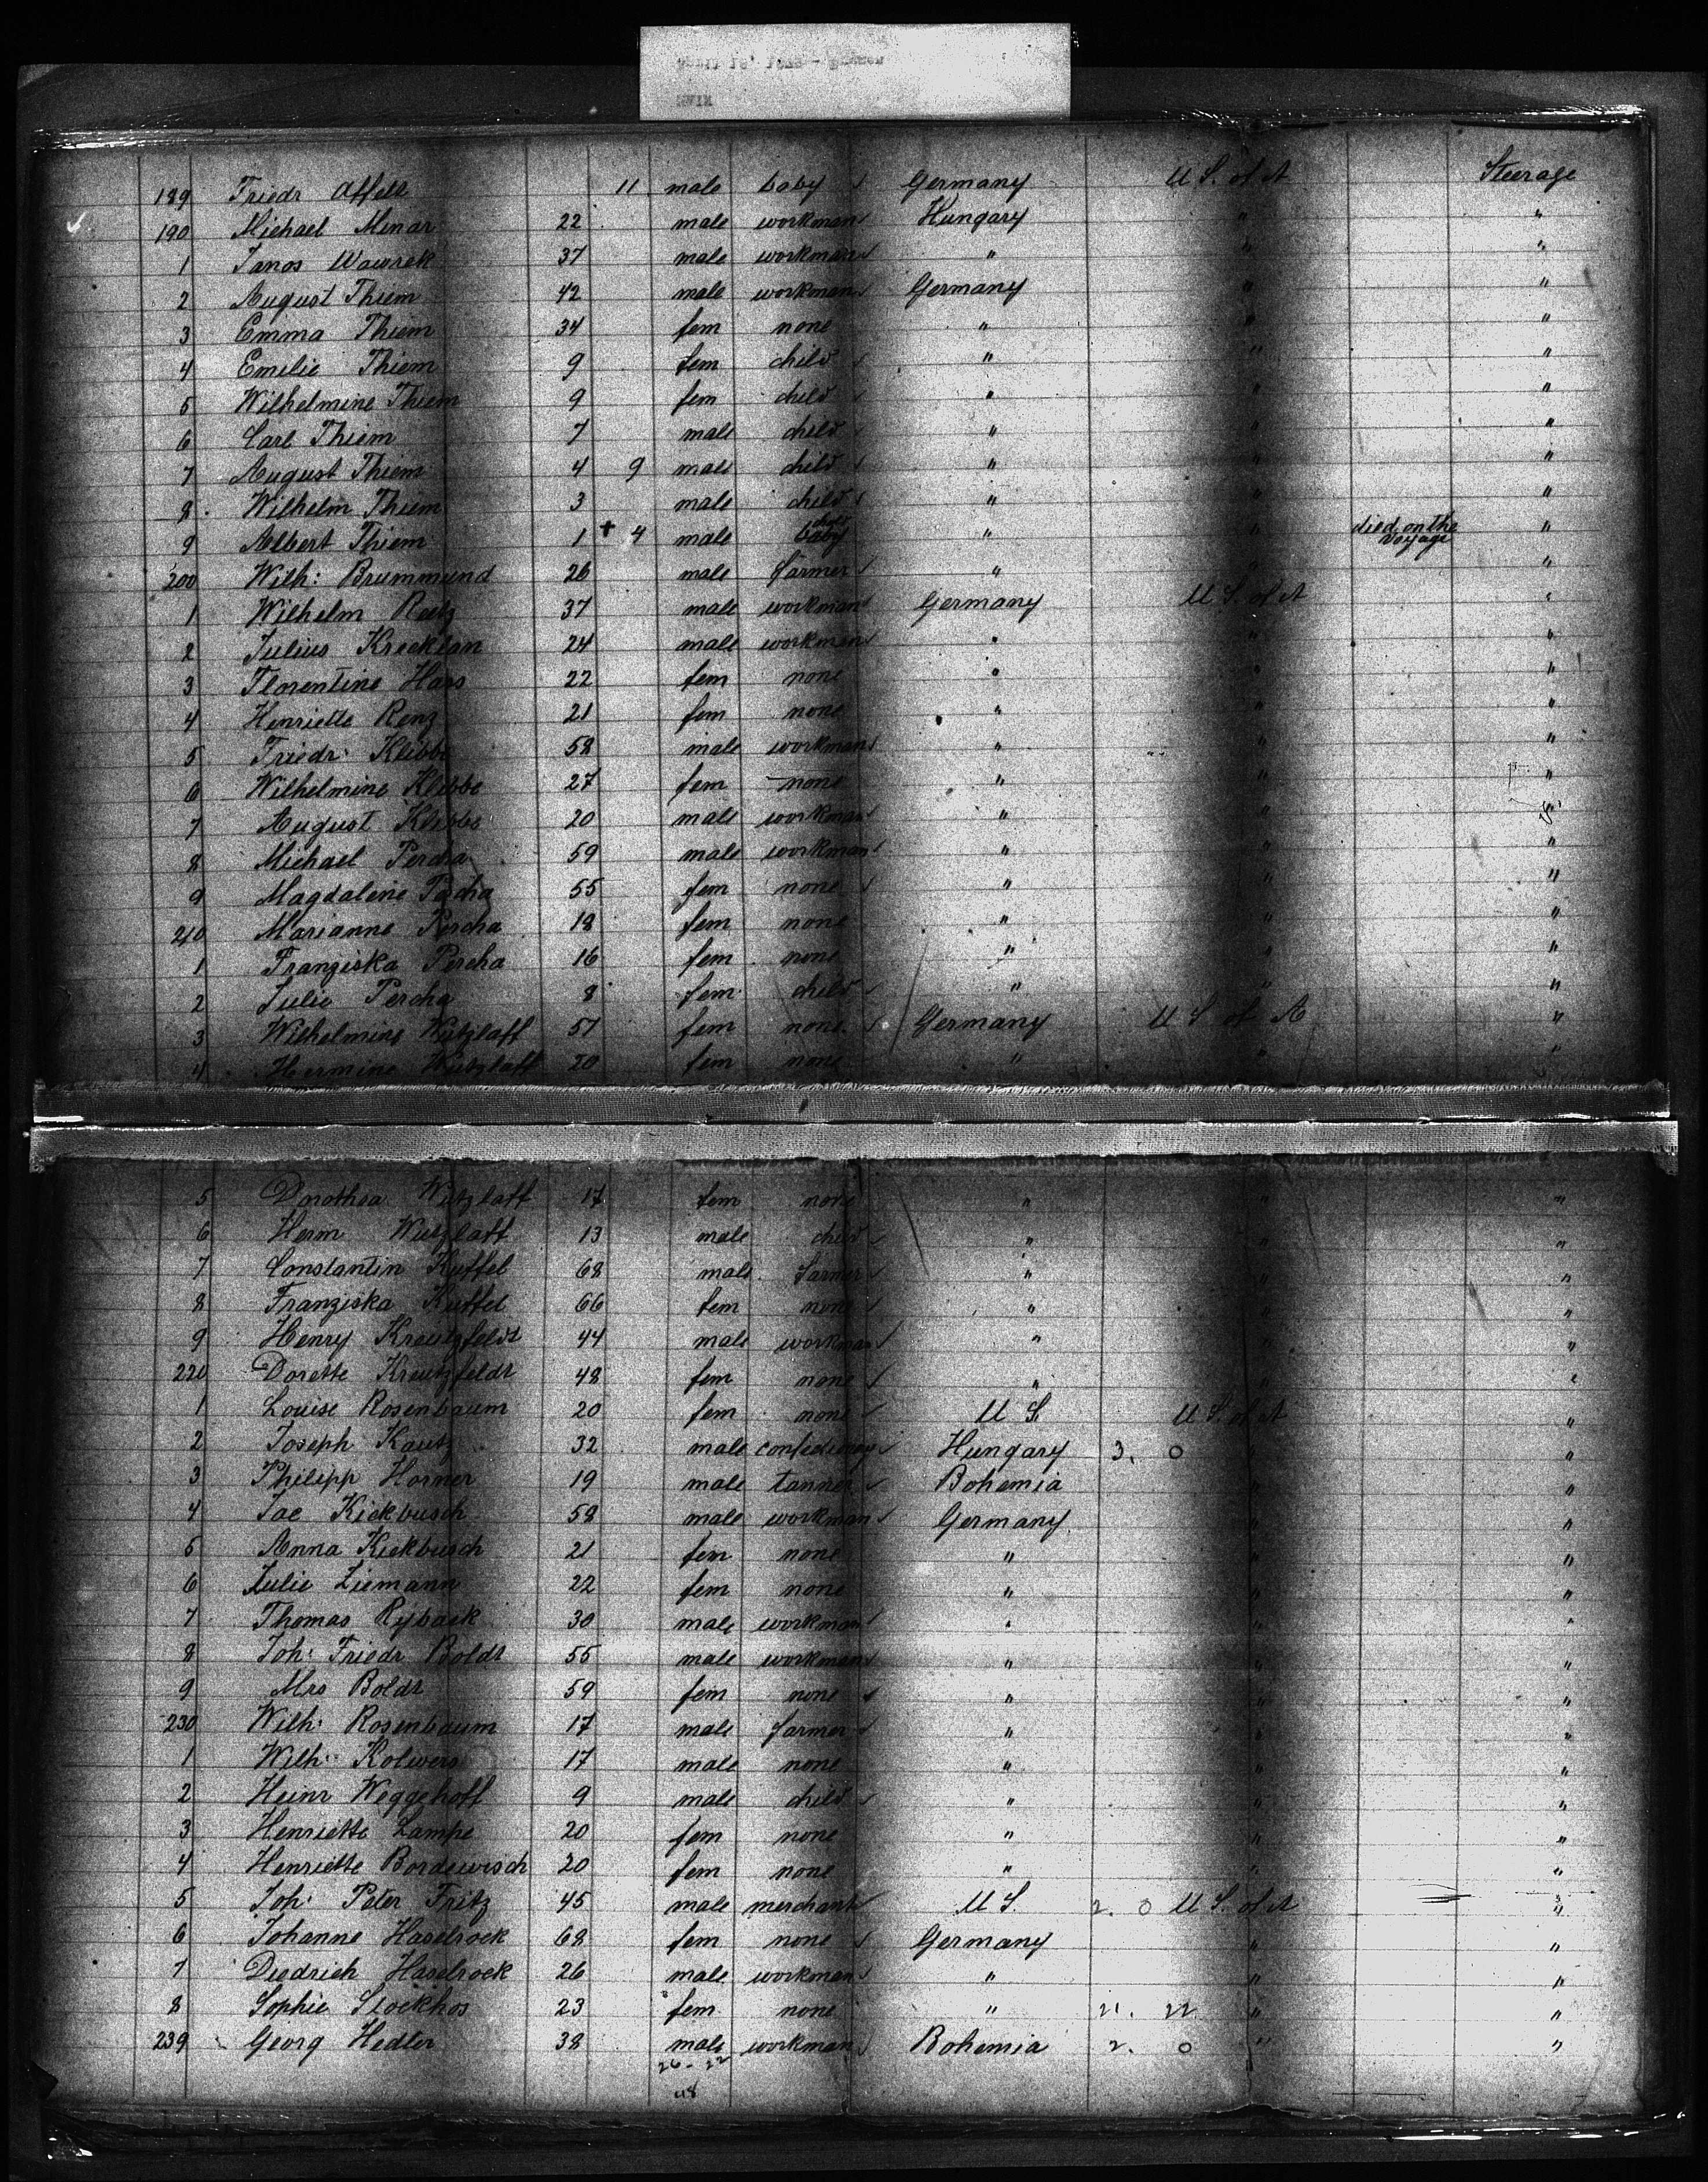 189 Friedr Affelt 11 male baby Germany U S. of A Steerage
190 Michael Minar 22 male workman Hungary " "
1 Janos Wawrek 37 male workman " " "
2 August Thiem 42 male workman Germany " "
3 Emma Thiem 34 fem none " " "
4 Emilie Thiem 9 fem child " " "
5 Wilhelmine Thiem 9 fem child " " "
6 Carl Thiem 7 male child " " "
7 August Thiem 4 9 male child " " "
8 Wilhelm Thiem 3 male child " " "
9 Albert Thiem 1 + 4 male baby " " died on the voyage "
200 Wilh: Brummund 26 male farmer " " "
1 Wilhelm Reetz 37 male workman Germany U S of A "
2 Julius 24 male workman " " "
3 Florentine Hass 22 fem none " " "
4 Henriette Renz 21 fem none " " "
5 Friedr: Klebbe 58 male workman " " "
6 Wilhelmine Klebbe 27 fem none " " "
7 August Klebbe 20 male workman " " "
8 Michael Percha 59 male workman " " "
9 Magdalene Percha 55 fem none " " "
210 Marianne Percha 18 fem none " " "
1 Franziska Percha 16 fem none " " "
2 Julie Percha 8 fem child " " "
3 Wilhelmine Witzlaff 51 fem none Germany U S of A "
4 Hermine Witzlaff 20 fem none " " "
5 Dorothea Witzlaff 17 fem none " " "
6 Herm Witzlaff 13 male child " " "
7 Constantin Kuffel 68 male farmer " " "
8 Franziska Kuffel 66 fem none " " "
9 Henry Kreutzfeldt 44 male workman " " "
220 Dorette Kreutzfeldt 48 fem none " " "
1 Louise Rosenbaum 20 fem none U S. U S. of A "
2 Joseph Kautz 32 male Hungary 3. 0 " "
3 Philipp Horner 19 male tanner Bohemia " "
4 Jac Kickbusch 58 male workman Germany " "
5 Anna Kickbusch 21 fem none " " "
6 Julie Ziemann 22 fem none " " "
7 Thomas Ryback 30 male workman " " "
8 Joh: Friedr Boldt 55 male workman " " "
9 Mrs Boldt 59 fem none " " "
230 Wilh: Rosenbaum 17 male farmer " " "
1 Wilh: Kolwers 17 male none " " "
2 Heinr Weggehoff 9 male child " " "
3 Henriette Lampe 20 fem none " " "
4 Henriette Bordewisch 20 fem none " " "
5 Joh: Peter Fritz 45 male merchant U S. 2. 0 U S. of A "
6 Johanne Haselrock 68 fem none Germany " "
7 Diedrich Haselrock 26 male workman " " "
8 Sophie Stockhos 23 fem none " 21. 22. " "
239 Georg Hedler 38 male workman Bohemia 2. 0 " "
26 - 22
48